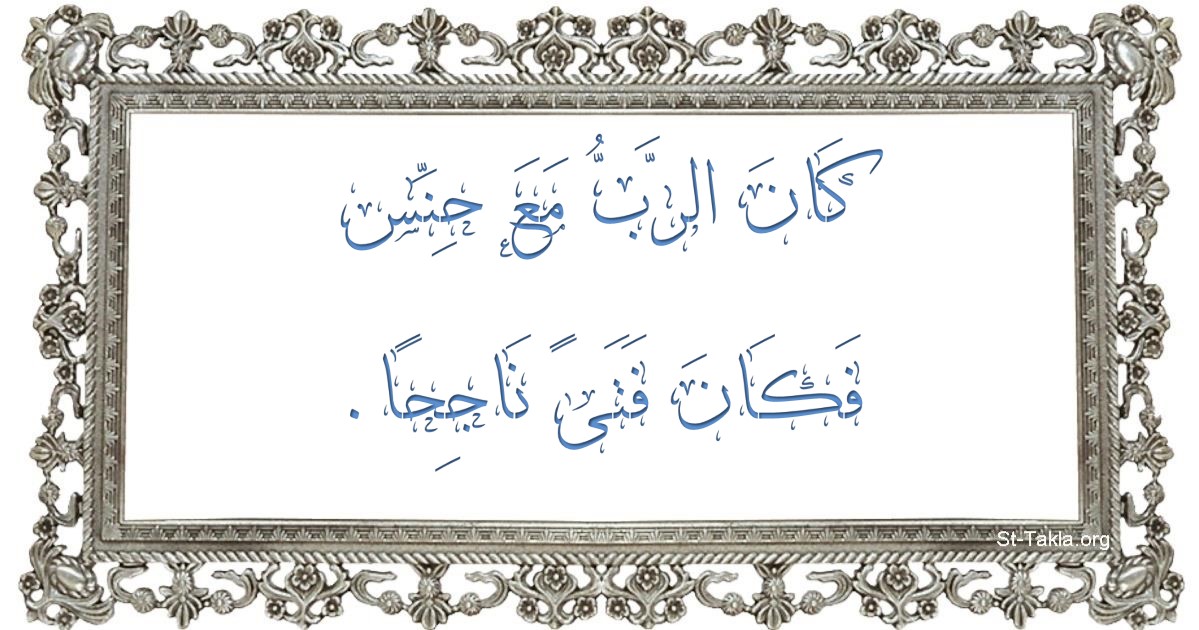 كَانَ الرَّبُّ مَعَ حِنِّس
فَكَانَ فَتَىً نَاجِحًا.
St-Takla.org